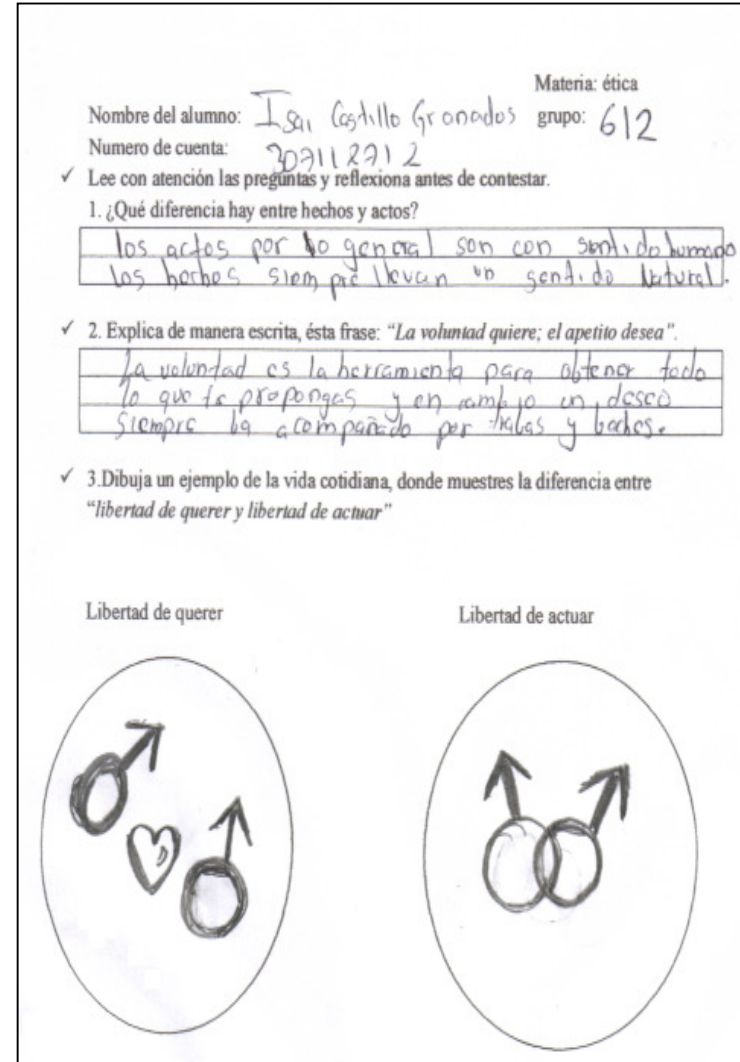 Materia: ética
Nombre del alumno: Isai Castillo Granados grupo: 612
Numero de cuenta: 307112712
✓ Lee con atención las preguntas y reflexiona antes de contestar.
1. ¿Qué diferencia hay entre hechos y actos?
los actos por lo general son con sentido humano
los hechos siempre llevan un sentido Natural.
✓ 2. Explica de manera escrita, ésta frase: "La voluntad quiere; el apetito desea".
La voluntad es la herramienta para obtener todo
lo que te propongas y en cambio un deseo
siempre ba acompañado por trabas y baches.
✓ 3.Dibuja un ejemplo de la vida cotidiana, donde muestres la diferencia entre
"libertad de querer y libertad de actuar"
Libertad de querer Libertad de actuar